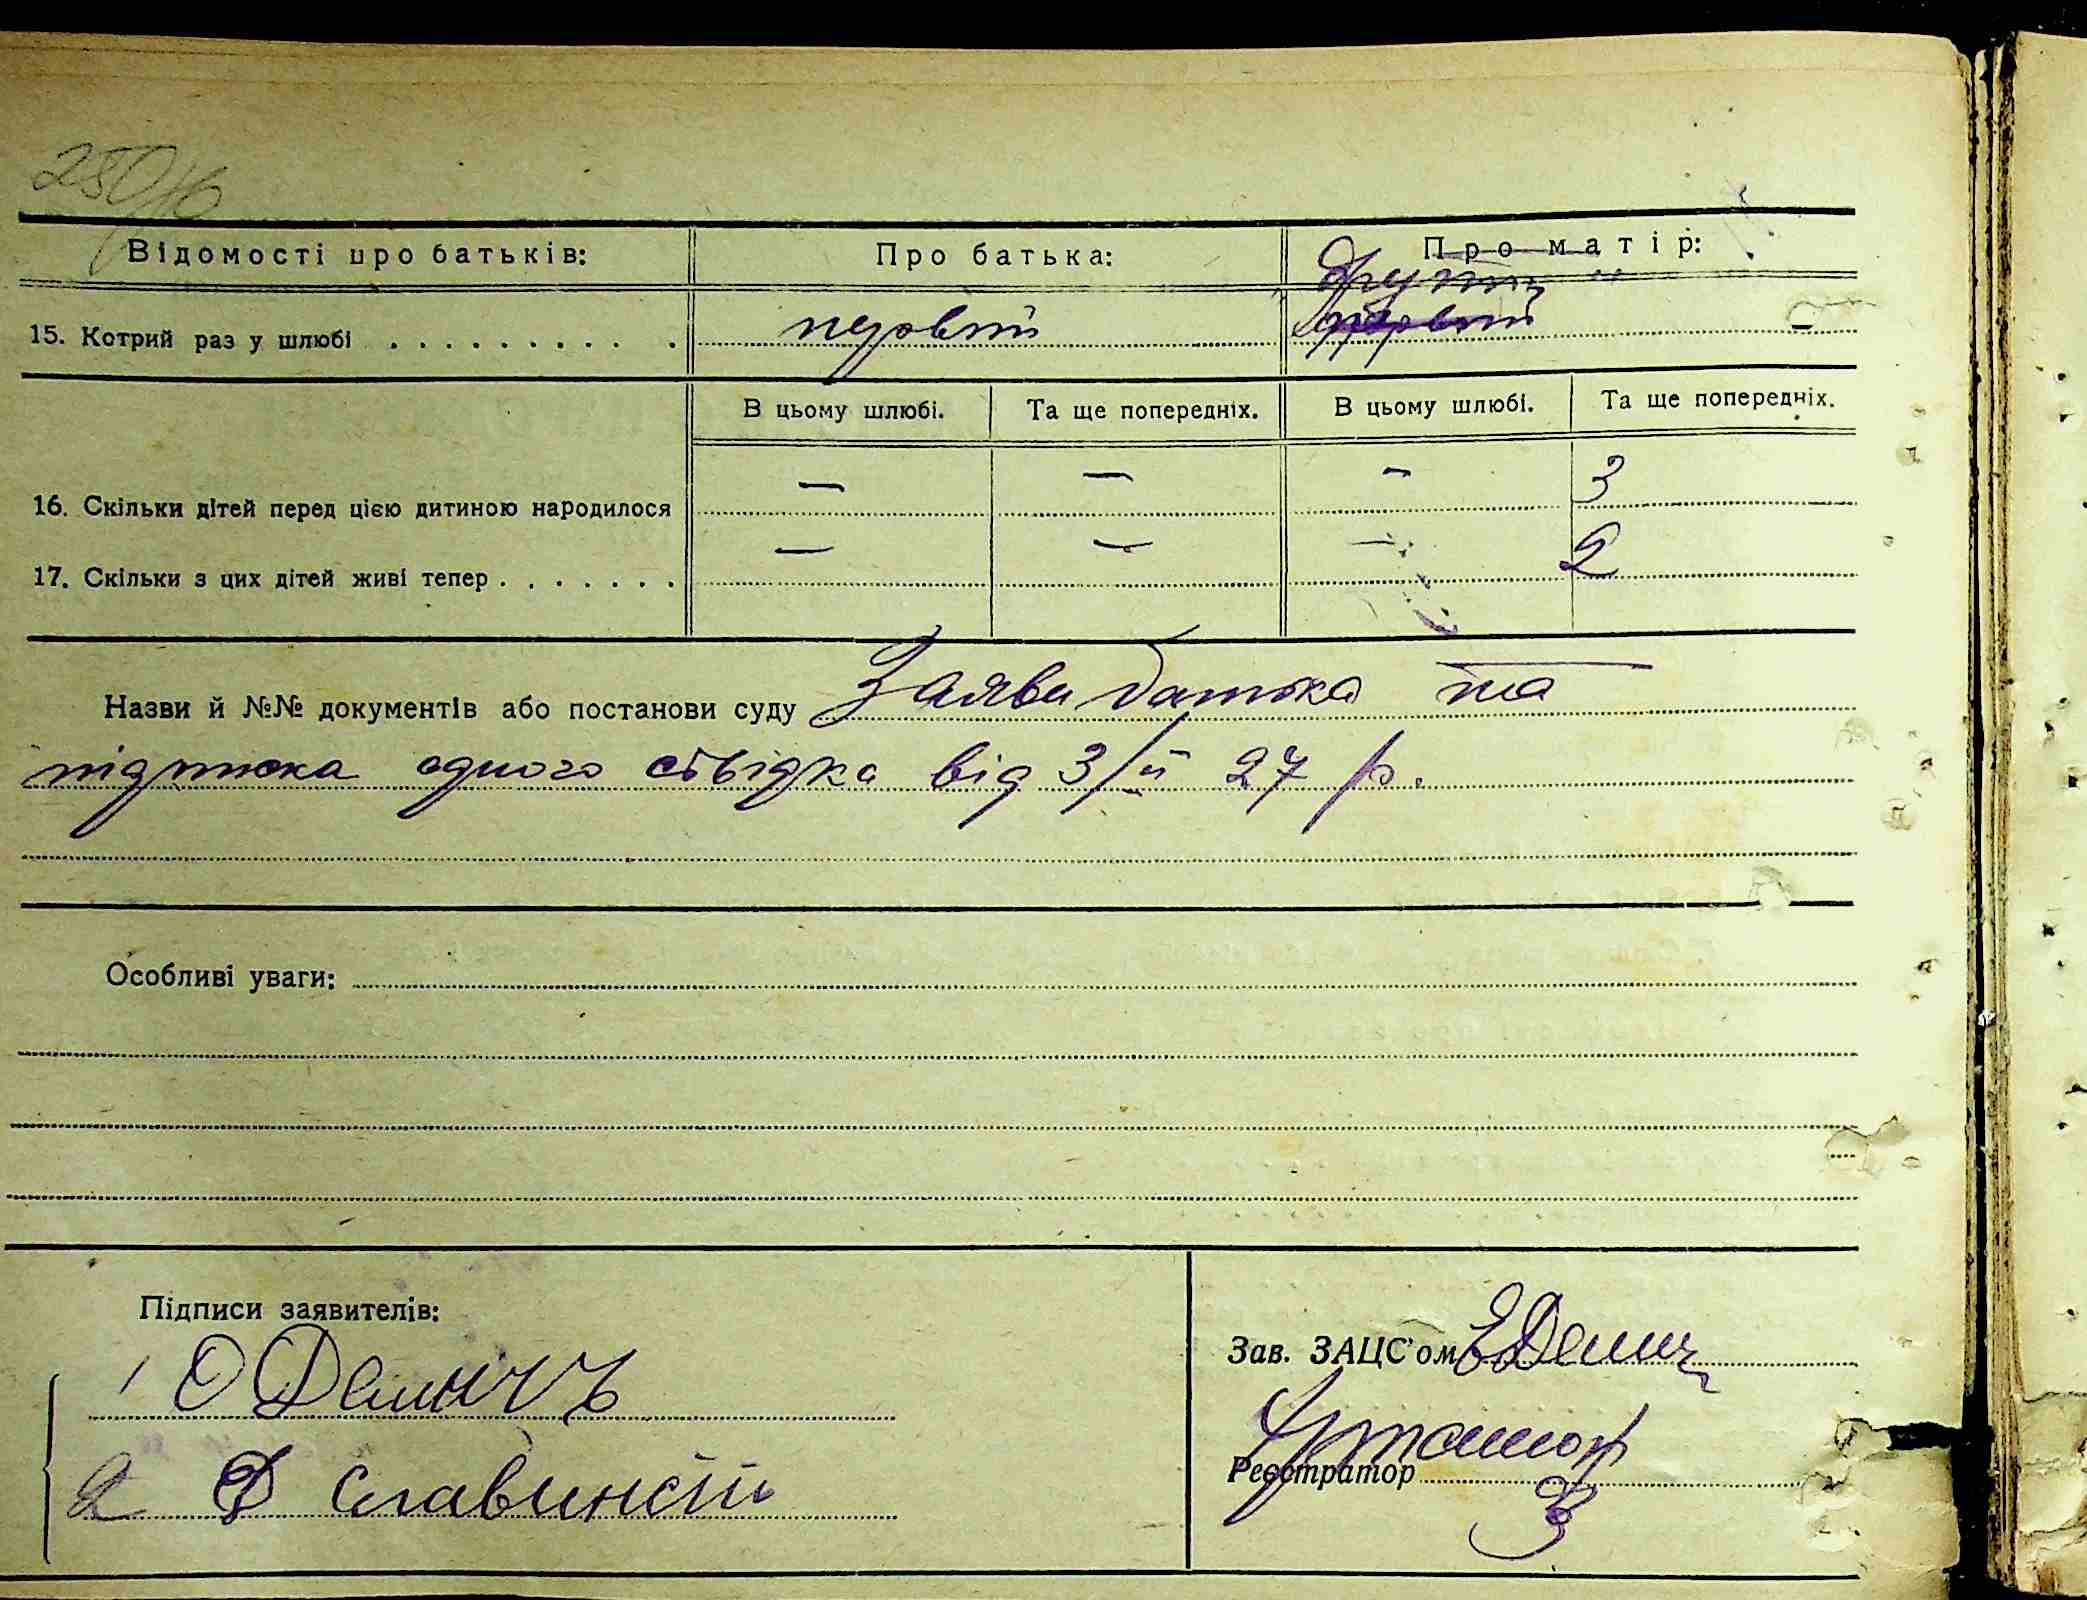 Відомості про батьків: Про батька: Про матір:
другий
15. Котрий раз у шлюбі первий первий
В цьому шлюбі. Та ще попередніх. В цьому шлюбі. Та ще попередніх.
16. Скільки дітей перед цією дитиною народилося — — — 3
17. Скільки з цих дітей живі тепер — — — 2
Назви й №№ документів або постанови суду Заява батька та
підписка одного свідка від 3/ІІ 27 р.
Особливі уваги:
Підписи заявителів:
Зав. ЗАЦС'ом
1 О Демичъ
Реєстратор
2 Ф Славинсій